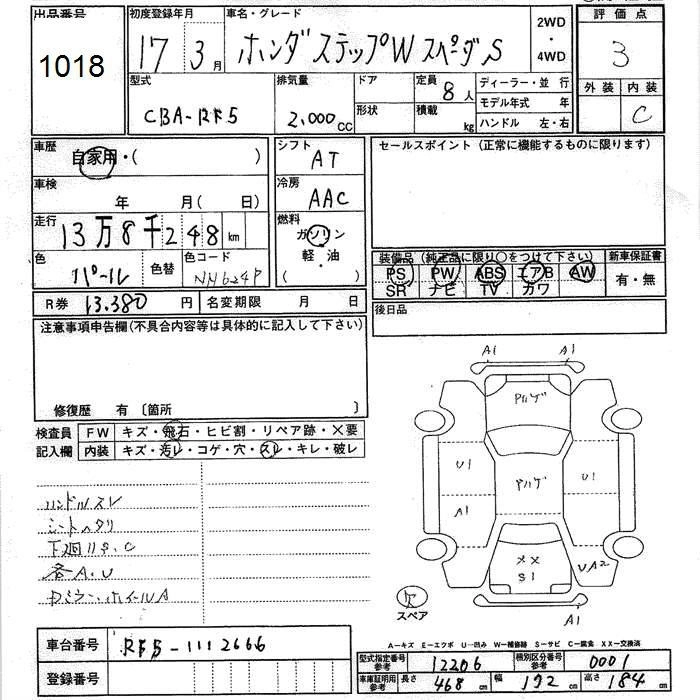 出品番号
1018
初度登録年月
17 3月
車名・グレード
ホンダ ステップW スペーダS
2WD
・
4WD
評価点
3
外装 内装
C
型式
CBA-RF5
排気量
2,000cc
ドア
形状
定員 8人
積載 kg
ディーラー・並 行
モデル年式 年
ハンドル 左・右
車歴
自家用・( )
シフト
AT
車検
年 月( 日)
冷房
AAC
走行
13万8千248km
燃料
ガソリン
軽・油
色
パール
色替
色コード
NH624P
R券 13,380円
名変期限 月 日
セールスポイント(正常に機能するものに限ります)
装備品(純正品に限り○をつけて下さい)
PS PW ABS エアB AW
SR ナビ TV カワ
新車保証書
有・無
後日品
注意事項申告欄(不具合内容等は具体的に記入して下さい)
修復歴 有 〔箇所 〕
検査員
記入欄
FW キズ・飛石・ヒビ割・リペア跡・×要
内装 キズ・汚レ・コゲ・穴・スレ・キレ・破レ
ハンドルスレ
シートヘタリ
下廻りS.C
各A.U
ホイールA
A1 A1
U1
A1
U1
××
S1
UA2
A1
欠
スペア
車台番号 RF5-1112666
登録番号
A―キズ E―エクボ U―凹み W―補修跡 S―サビ C―腐食 XX―交換済
型式指定番号
参考
12206
類別区分番号
参考
0001
車庫証明用
参考
長さ 468 幅 172 高さ 184